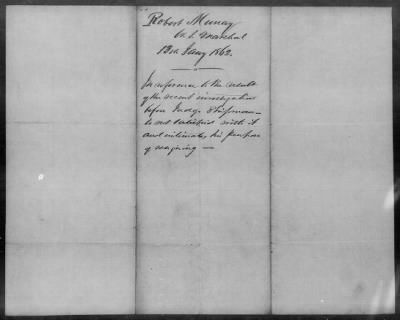 Robert Murray
U. S. Marshal
13th Jany 1862.
In reference to the result
of the recent investigation
before Judge
is not satisfied with it
and intimates his purpose
of resigning —